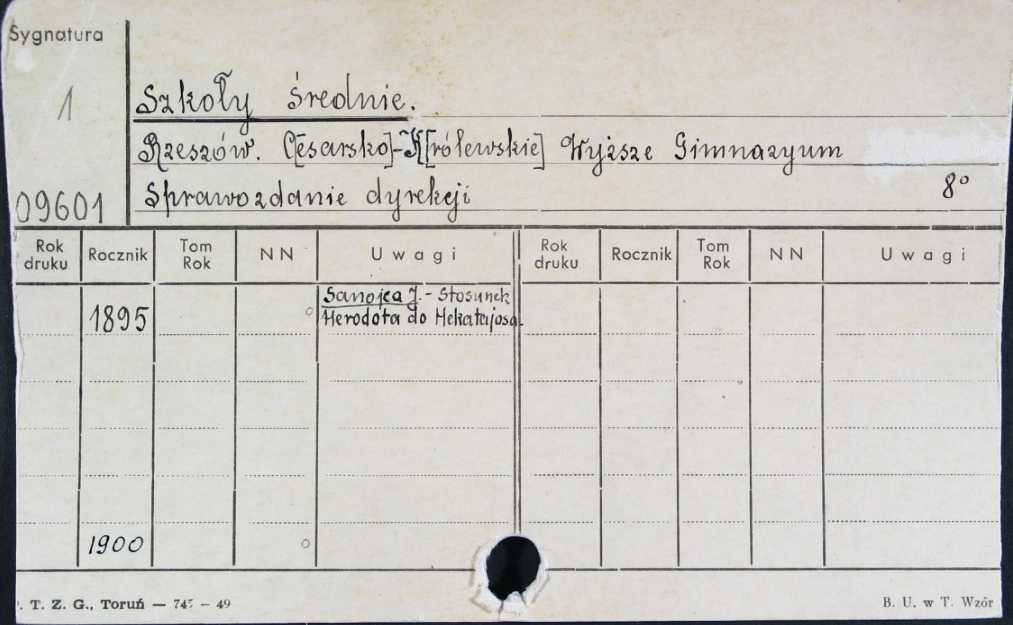 Sygnatura
1
09601
Szkoły średnie.
Rzeszów. C[esarsko]-K[rólewskie] Wyższe Gimnazyum
Sprawozdanie dyrekcji 8°
Rok druku Rocznik Tom Rok NN Uwagi Rok druku Rocznik Tom Rok NN Uwagi
1895 Sanojca J. - Stosunek
Herodota do Hekatajosa.
1900
T. Z. G., Toruń — 745 — 49 B. U. w T. Wzór